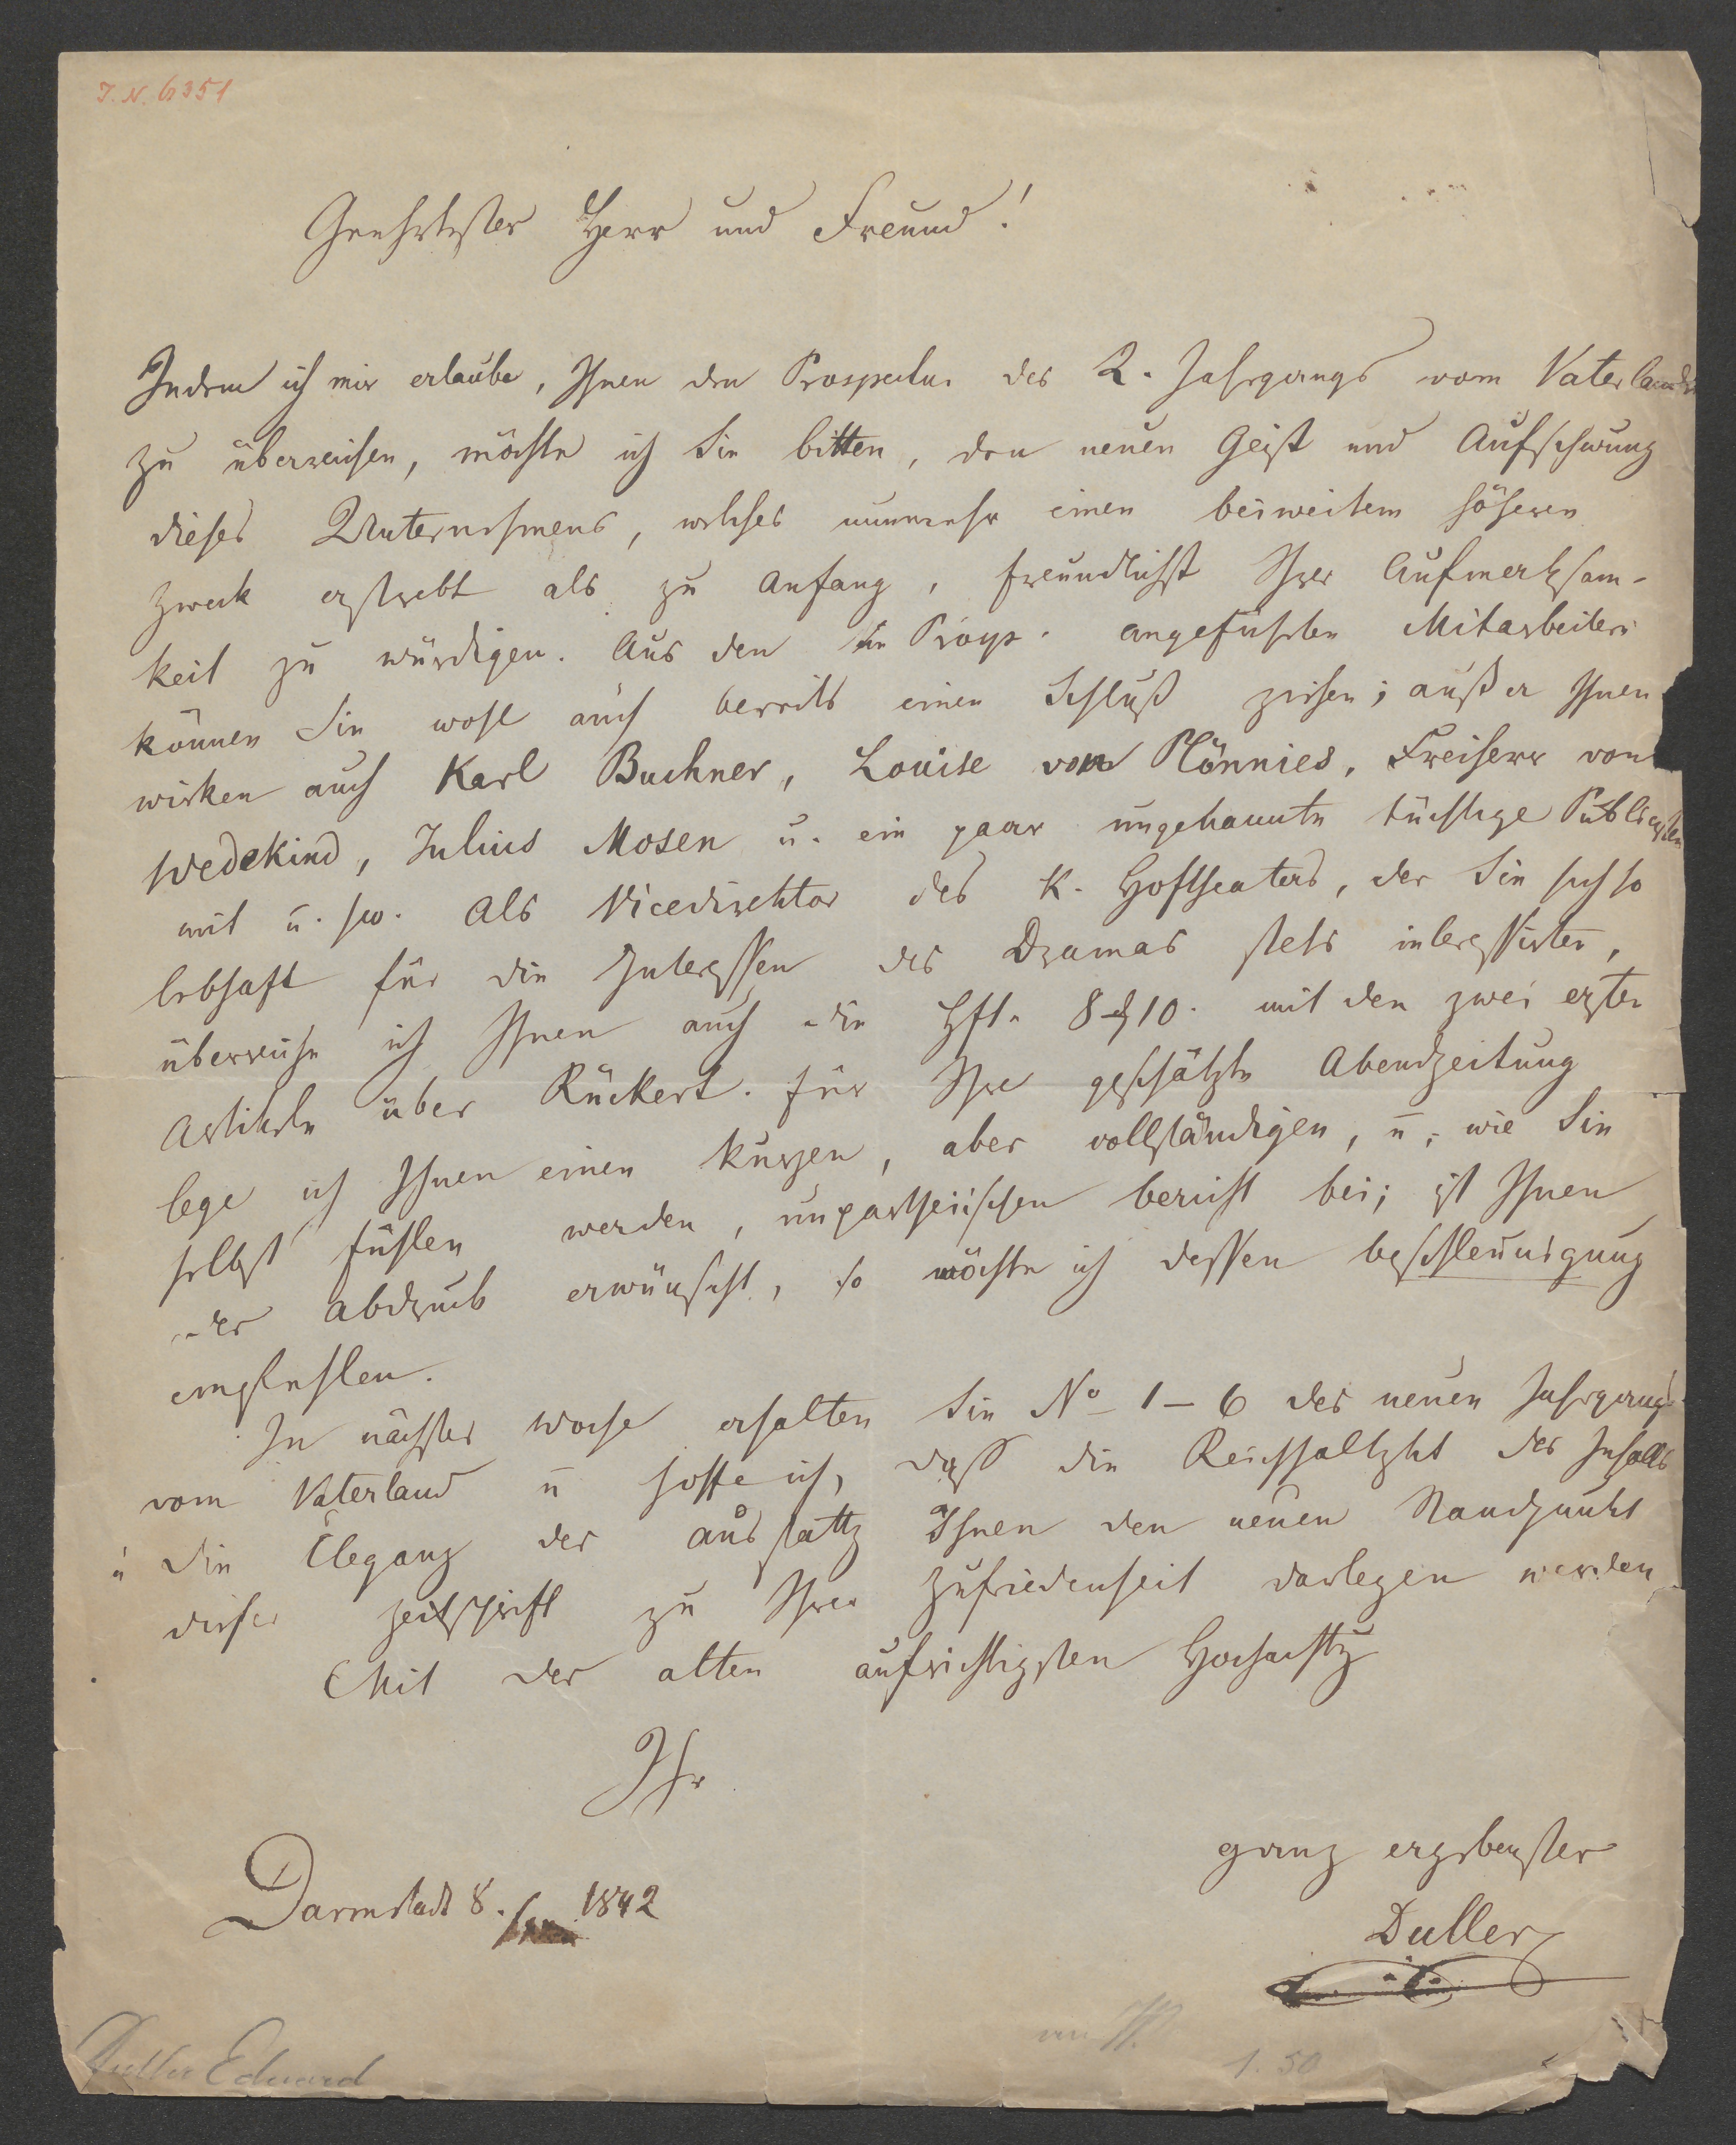 I. N. 6351
Geehrtester Herr und Freund!
Indem ich mir erlaube, Ihnen den Prospectus des 2. Jahrgangs vom Vaterlande
zu überreichen, möchte ich Sie bitten, den neuen Geist und Aufschwung
dieses Unternehmens, welches nunmehr einen beiweitem höheren
Zweck erstrebt als zu Anfang, freundlichst Ihrer Aufmerksam-
keit zu würdigen. Aus den im Prosp. angeführten Mitarbeitern
können Sie wohl auch bereits einen Schluß ziehen; außer Ihnen
wirken auch Karl Buchner, Louise von Plönnies, Freiherr von
Wedekind, Julius Mosen u. ein paar ungenannte tüchtige Publicisten
mit u. sw. Als Vicedirektor des K. Hoftheaters, der Sie sich so
lebhaft für die Interessen des Dramas stets interessirten,
überreiche ich Ihnen auch die Hfte 8 & 10. mit den zwei ersten
Artikeln über Rückert. Für Ihre geschätzte Abendzeitung
lege ich Ihnen einen kurzen, aber vollständigen, u., wie Sie
selbst fühlen werden, unpartheiischen Bericht bei; ist Ihnen
der Abdruck erwünscht, so möchte ich dessen Beschleunigung
empfehlen.
In nächster Woche erhalten Sie No 1 – 6 des neuen Jahrgangs
vom Vaterland u hoffe ich, daß die Reichhaltigkt des Inhalts
u die Eleganz der Ausstattg Ihnen den neuen Standpunkt
dieser Zeitschrift zu Ihrer Zufriedenheit darlegen werden
Mit der alten aufrichtigsten Hochachtg
Ihr
ganz ergebenster
Duller
Darmstadt 8. Jan. 1842
Duller Eduard
1.50